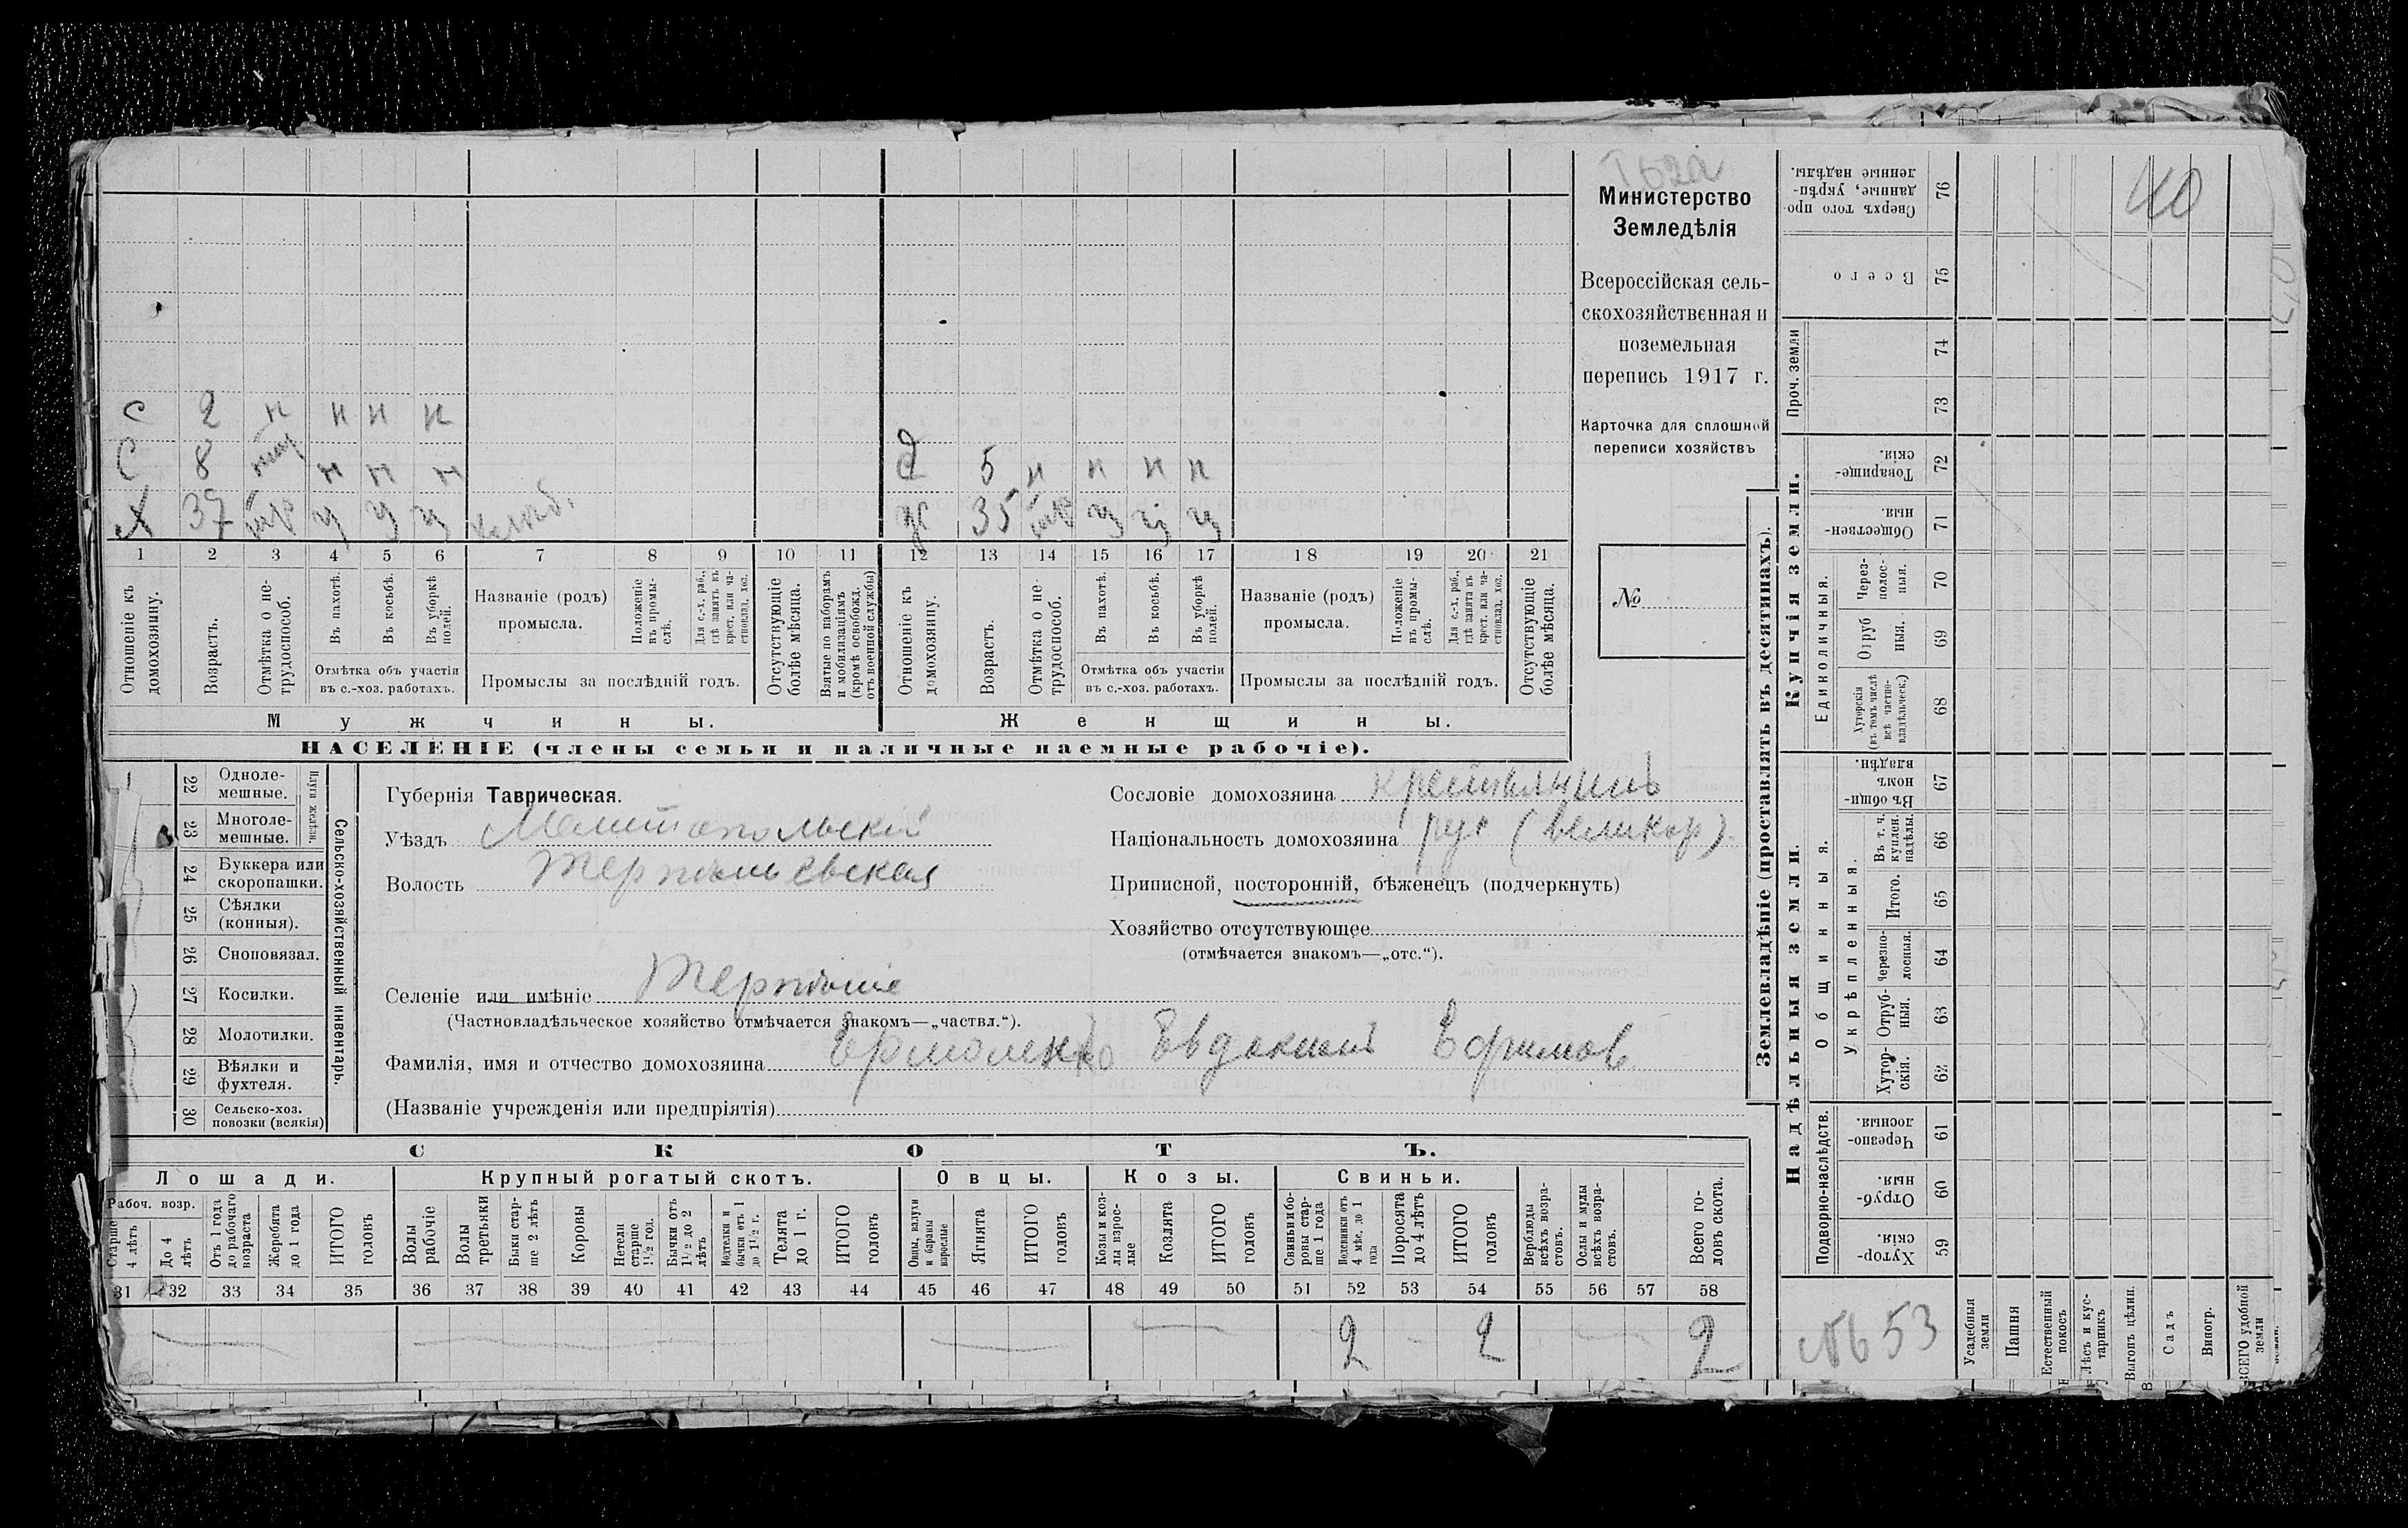 с 2 н н н н
С 8 н н н
Х 37 тр у у у
д 5 н н н н
ж 35 тр у у у
1 2 3 4 5 6 7 8 9 10 11 12 13 14 15 16 17 18 19 20 21
Отношеніе къ домохозяину.
Возрастъ.
Отмѣтка о не-
трудоспособ.
Въ пахотѣ.
Въ косьбѣ.
Въ уборкѣ
полей.
Отмѣтка объ участіи
въ с.-хоз. работахъ.
Названіе (родъ)
промысла.
Положеніе
въ промы-
слѣ.
Для с.-х. раб.,
гдѣ занятъ въ
крест. или ча-
стновлад. хоз.
Промыслы за послѣдній годъ.
Отсутствующіе
болѣе мѣсяца.
Взятые по наборамъ
и мобилизаціямъ
(кромѣ освобожд.
отъ военной службы)
Отношеніе къ
домохозяину.
Возрастъ.
Отмѣтка о не-
трудоспособ.
Въ пахотѣ.
Въ косьбѣ.
Въ уборкѣ
полей.
Отмѣтка объ участіи
въ с.-хоз. работахъ.
Названіе (родъ)
промысла.
Положеніе
въ промы-
слѣ.
Для с.-х. раб.,
гдѣ занята въ
крест. или ча-
стновлад. хоз.
Промыслы за послѣдній годъ.
Отсутствующіе
болѣе мѣсяца.
Мужчины.
Женщины.
НАСЕЛЕНІЕ (члены семьи и наличные наемные рабочіе).
Министерство
Земледѣлія
Всероссійская сель-
скохозяйственная и
поземельная
перепись 1917 г.
Карточка для сплошной
переписи хозяйствъ
№
22 Одноле-
мешные.
23 Многоле-
мешные.
Плуги желѣзн.
24 Буккера или
скоропашки.
25 Сѣялки
(конныя).
26 Сноповязал.
27 Косилки.
28 Молотилки.
29 Вѣялки и
фухтеля.
30 Сельско-хоз.
повозки (всякія)
Сельско-хозяйственный инвентарь.
Губернія Таврическая.
Уѣздъ Мелитопольскій
Волость Терпеньевская
Селеніе или имѣніе Терпѣніе
(Частновладѣльческое хозяйство отмѣчается знакомъ—„частвл.“).
Фамилія, имя и отчество домохозяина Ермоленко Евдокимъ Ефимов
(Названіе учрежденія или предпріятія)
Сословіе домохозяина крестьянинъ
Національность домохозяина рус (великор).
Приписной, посторонній, бѣженецъ (подчеркнуть)
Хозяйство отсутствующее
(отмѣчается знакомъ—„отс.“).
СКОТЪ.
Лошади.
Крупный рогатый скотъ.
Овцы.
Козы.
Свиньи.
Рабоч. возр.
Старше
4 лѣтъ
До 4
лѣтъ
Отъ 1 года
до рабочаго
возраста
Жеребята
до 1 года
ИТОГО
головъ
Волы
рабочіе
Волы
третьяки
Быки стар-
ше 2 лѣтъ
Коровы
Нетели
старше
1½ год.
Бычки отъ
1½ до 2
лѣтъ
Подтелки и
бычки отъ 1
до 1½ г.
Телята
до 1 г.
ИТОГО
головъ
Овцы, валухи
и бараны
взрослые
Ягнята
ИТОГО
головъ
Козы и коз-
лы взрос-
лые
Козлята
ИТОГО
головъ
Свиньи и бо-
ровы стар-
ше 1 года
Подсвинки отъ
4 мѣс. до 1
года
Поросята
до 4 лѣтъ
ИТОГО
головъ
Верблюды
всѣхъ возра-
стовъ.
Ослы и мулы
всѣхъ возра-
стовъ.
Всего го-
ловъ скота.
31 32 33 34 35 36 37 38 39 40 41 42 43 44 45 46 47 48 49 50 51 52 53 54 55 56 57 58
2 2 2
Землевладѣніе (проставлять въ десятинахъ).
Купчія земли.
Надѣльныя земли.
Сверхъ того про-
данные, укрѣп-
ленные надѣлы.
76
40
Всего
75
Проч. земли
74
73
Товарище-
скія.
72
Обществен-
ныя.
71
Единоличныя.
Через-
полос-
ныя.
70
Отруб
ныя.
69
Хуторскія
(въ томъ числѣ
всѣ частно-
владѣльческ.)
68
Общинныя.
Въ общи-
номъ
владѣн.
67
Укрѣпленныя.
Въ т. ч.
куплен.
надѣлы.
66
Итого.
65
Черезпо-
лосныя.
64
Отруб-
ныя.
63
Хутор-
скія.
62
Подворно-наслѣдств.
Черезпо-
лосныя.
61
Отруб-
ныя.
60
Хутор-
скія.
59
№ 53
Усадебная
земли
Пашня
Естественный
покосъ
Лѣсъ и кус-
тарникъ
Выгонъ цѣлин.
Садъ
Виногр.
ВСЕГО удобной
земли